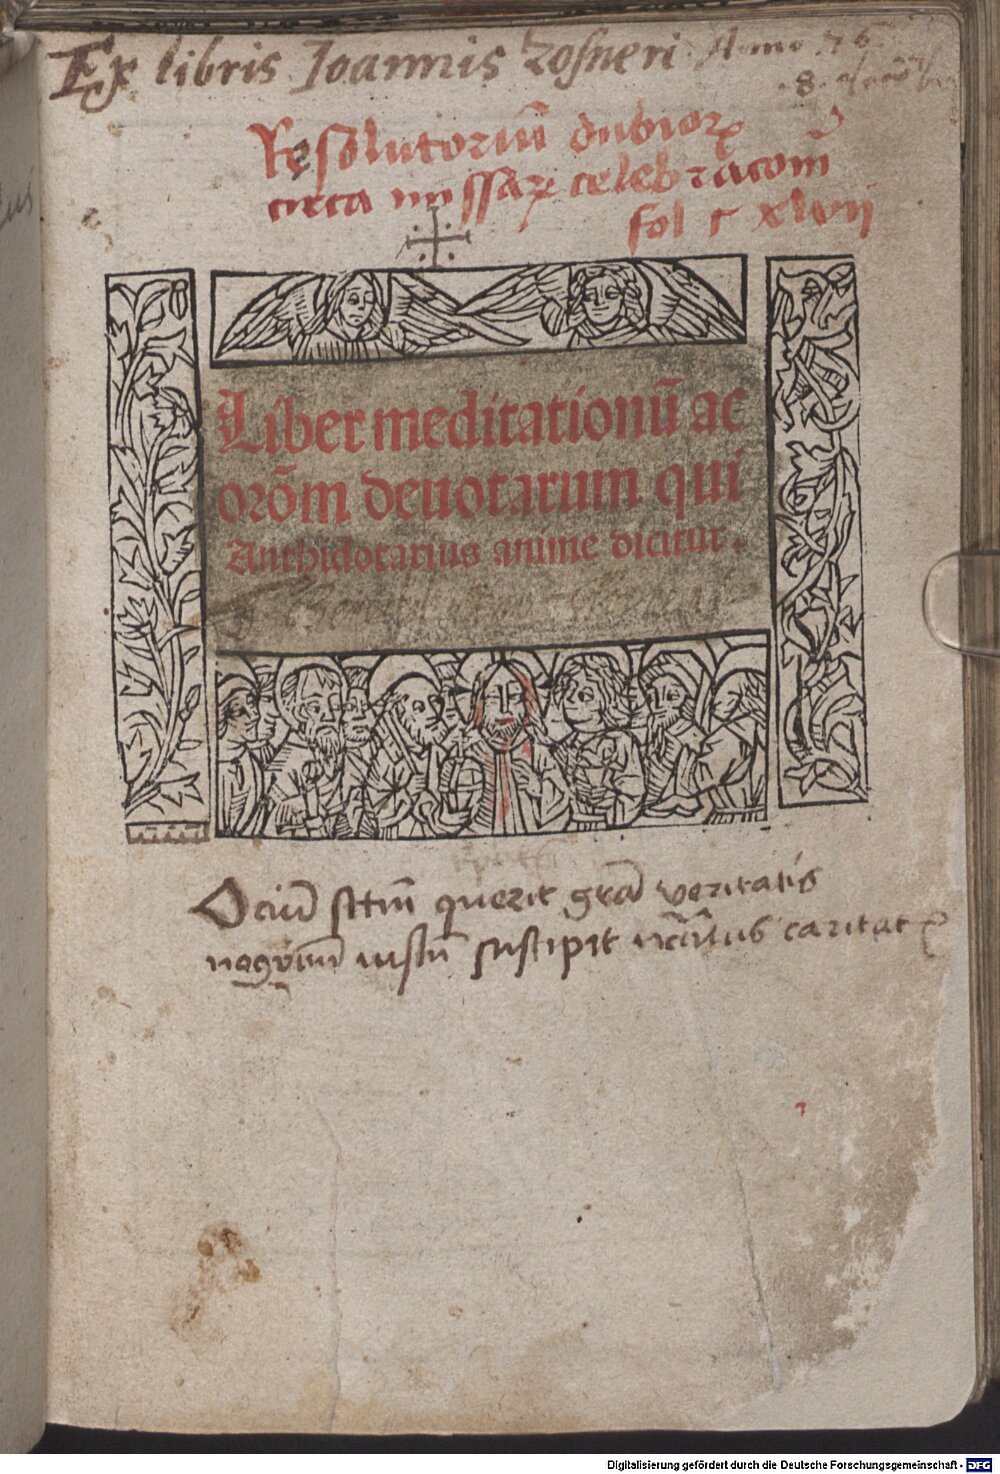 Ex libris Ioannis Zosneri Anno 76
8
Resolutoriū dubioꝝ
circa missaꝝ celebracōm
fol c xlvij
Liber meditationū ac
orōm deuotarum qui
Anthidotarius anime dicitur.
Ociū sctm̄ querit
veritatis
iustū suscipit caritat
Digitalisierung gefördert durch die Deutsche Forschungsgemeinschaft - DFG